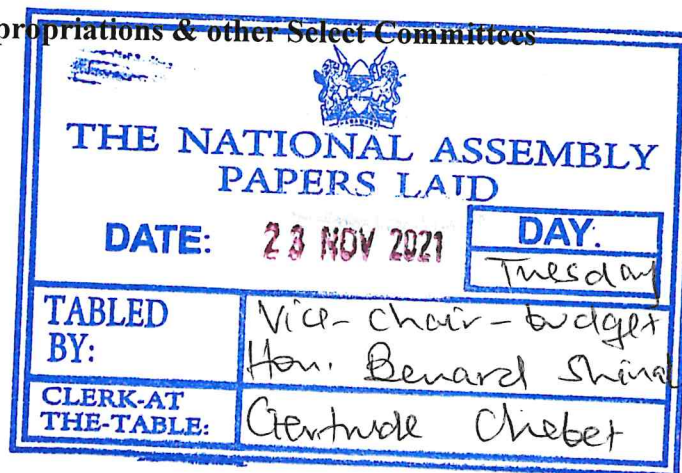 propriations & other Select Committees
THE NATIONAL ASSEMBLY
PAPERS LAID
DATE: 23 NOV 2021
DAY.
Tuesday
TABLED BY:
Vice-chair-budget
Hon. Benard Shinal
CLERK-AT THE-TABLE:
Gertrude Chebet